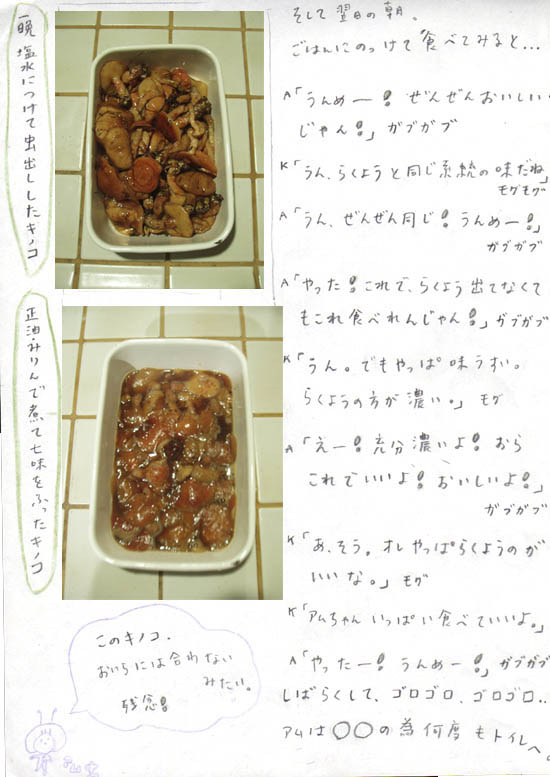 一晩塩水につけて虫出ししたキノコ
正油・みりんで煮て七味をふったキノコ
そして翌日の朝。
ごはんにのっけて食べてみると…
A「うんめー! ぜんぜんおいしい
じゃん!」ガブガブ
K「うん、らくようと同じ系統の味だね」
モグモグ
A「うん、ぜんぜん同じ!うんめー!」
ガブガブ
A「やった!これで、らくよう出てなくて
もこれ食べれんじゃん!」ガブガブ
K「うん。でもやっぱ味うすい。
らくようの方が濃い。」モグ
A「えー!充分濃いよ!おら
これでいいよ!おいしいよ!」
ガブガブ
K「あ、そう。オレやっぱらくようのが
いいな。」モグ
K「アムちゃんいっぱい食べていいよ。」
A「やったー!うんめー!」ガブガブ
しばらくして、ゴロゴロ、ゴロゴロ..
アムは〇〇の為何度もトイレへ。
このキノコ、
おいらには合わない
みたい。
残念!